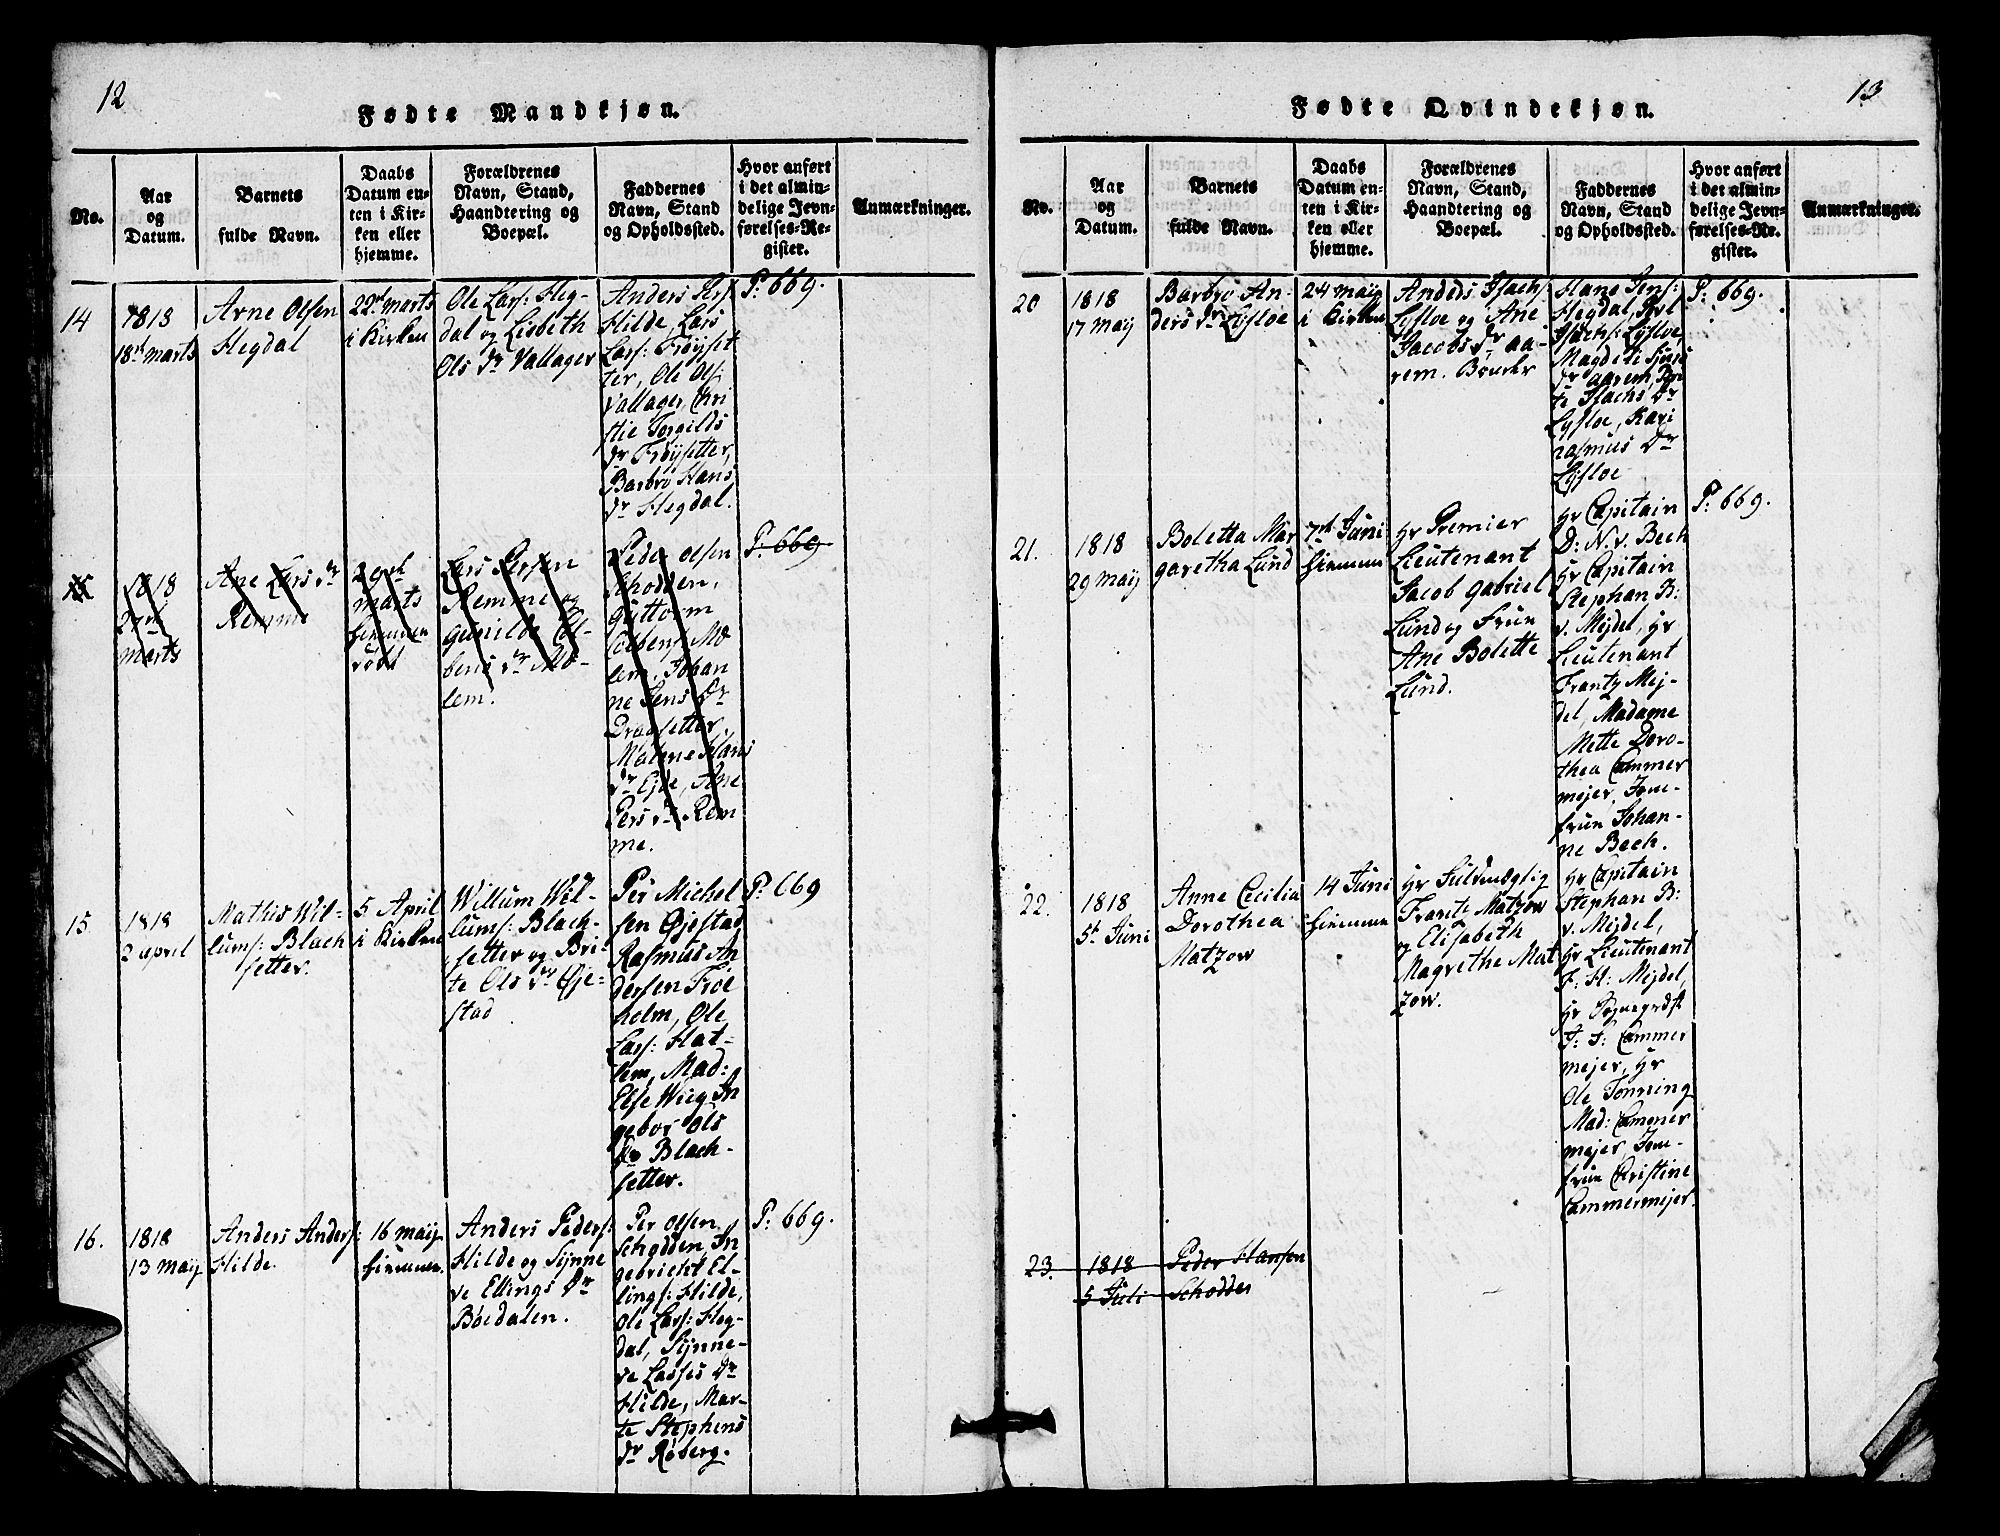 12
Fødte Mandkjøn.
No.
Aar
og
Datum.
Barnets
fulde Navn.
Daabs
Datum en-
ten i Kir-
ken eller
hjemme.
Forældrenes
Navn, Stand,
Haandtering og
Boepæl.
Faddernes
Navn, Stand
og Opholdssted.
Hvor anført
i det almin-
delige Jevn-
førelses-Re-
gister.
Anmærkninger.
14
1818
18de marts
Arne Olsen
Hegdal
22de marts
i Kirken
Ole Lars: Heg-
dal og Lisbeth
Ols Dr Vallager
Anders Pers:
Hilde, Lars
Lars: Frøyset
ter, Ole Ols:
Vallager, Chri
stie Torgilds
Dr Frøysetter,
Barbro Hans
Dr Hegdal.
P: 669.
1818
marts
Ane Lars Dr
Remme
29de
marts
hiemme
død
Lars Persen
Remme og
gunilde El-
bens Dr Mo-
lem.
Peder Olsen
Schodden,
guttorm
Elbens: Mo-
lem, Johan
ne Jens Dr
Dragsetter,
Malene Hans
Dr Ejde, Ane
Pers Dr Rem
me.
P: 669
15
1818
2 april
Mathis Wil-
lums: Blach
setter.
5 April
i Kirken
Willum Wil-
lums: Blach-
setter og Bri-
te Ols Dr Gje-
stad
Per Michel
sen Gjestad
Rasmus An
dersen Frøe
holm, Ole
Lars: Hat-
lem, Mad:
Else Wiig In
gebor Ols
Dr Blach-
setter.
P: 669
16.
1818
13 maij
Anders Anders:
Hilde.
16 maij
hiemme.
Anders Peders:
Hilde og Synne
ve Ellings Dr
Bøedalen.
Per Olsen
Schodden, In
gebrictet El-
lings: Hilde,
Ole Lars: Heg-
dal, Synne-
ve Lasses Dr
Hilde, Mar-
te Stephens
Dr Røberg.
P: 669.
13
Fødte Qvindekjøn.
No.
Aar
og
Datum.
Barnets
fulde Navn.
Daabs
Datum en-
ten i Kir-
ken eller
hjemme.
Forældrenes
Navn, Stand,
Haandtering og
Boepæl.
Faddernes
Navn, Stand
og Opholdssted.
Hvor anført
i det almin-
delige Jevn-
førelses-Re-
gister.
Anmærkninger.
20
1818
17 maij
Barbro An-
ders Dr Lysloe
24 maij
i Kirken
Anders Isachs:
Lysloe og Ane
Jacobs Dr Aa-
rem. Bruker
Hans Jens:
Hegdal, Povl
Isachs: Lysloe,
Magdeli
Dr aarem, Bri
te Isachs Dr
Lysloe, Kari
rasmus Dr
Lysloe
P: 669.
21.
1818
29 maij
Boletta Mar
garetha Lund
7de Juni
hiemme
Hr Premier
Lieutenant
Jacob Gabriel
Lund og Frue
Ane Bolette
Lund.
Hr Capitain
D: N. v. Bech
Hr Capitain
Stephan B:
v. Mejdel, Hr
Lieutenant
Frantz Mej-
del, Madame
Mette Doro-
thea Cammer
mejer, Jom-
frue Johan-
ne Bech.
P: 669.
22.
1818
5te Juni
Anne Cecilia
Dorothea
Matzow
14 Juni
hiemme
Hr Fuldmægtig
Frante Matzow
og Elisabeth
Magrethe Mat
zow.
Hr Capitain
Stephan B:
v. Mejdel,
Hr Lieutenant
F: H: Mejdel,
Hr Sognepræst
J: F: Cammer
mejer, Hr
Ole Tønning
Mad: Cammer
mejer, Jom-
frue Christine
Cammermejer.
P: 669.
23.
1818
5 Juli
Peder Hansen
Schodde